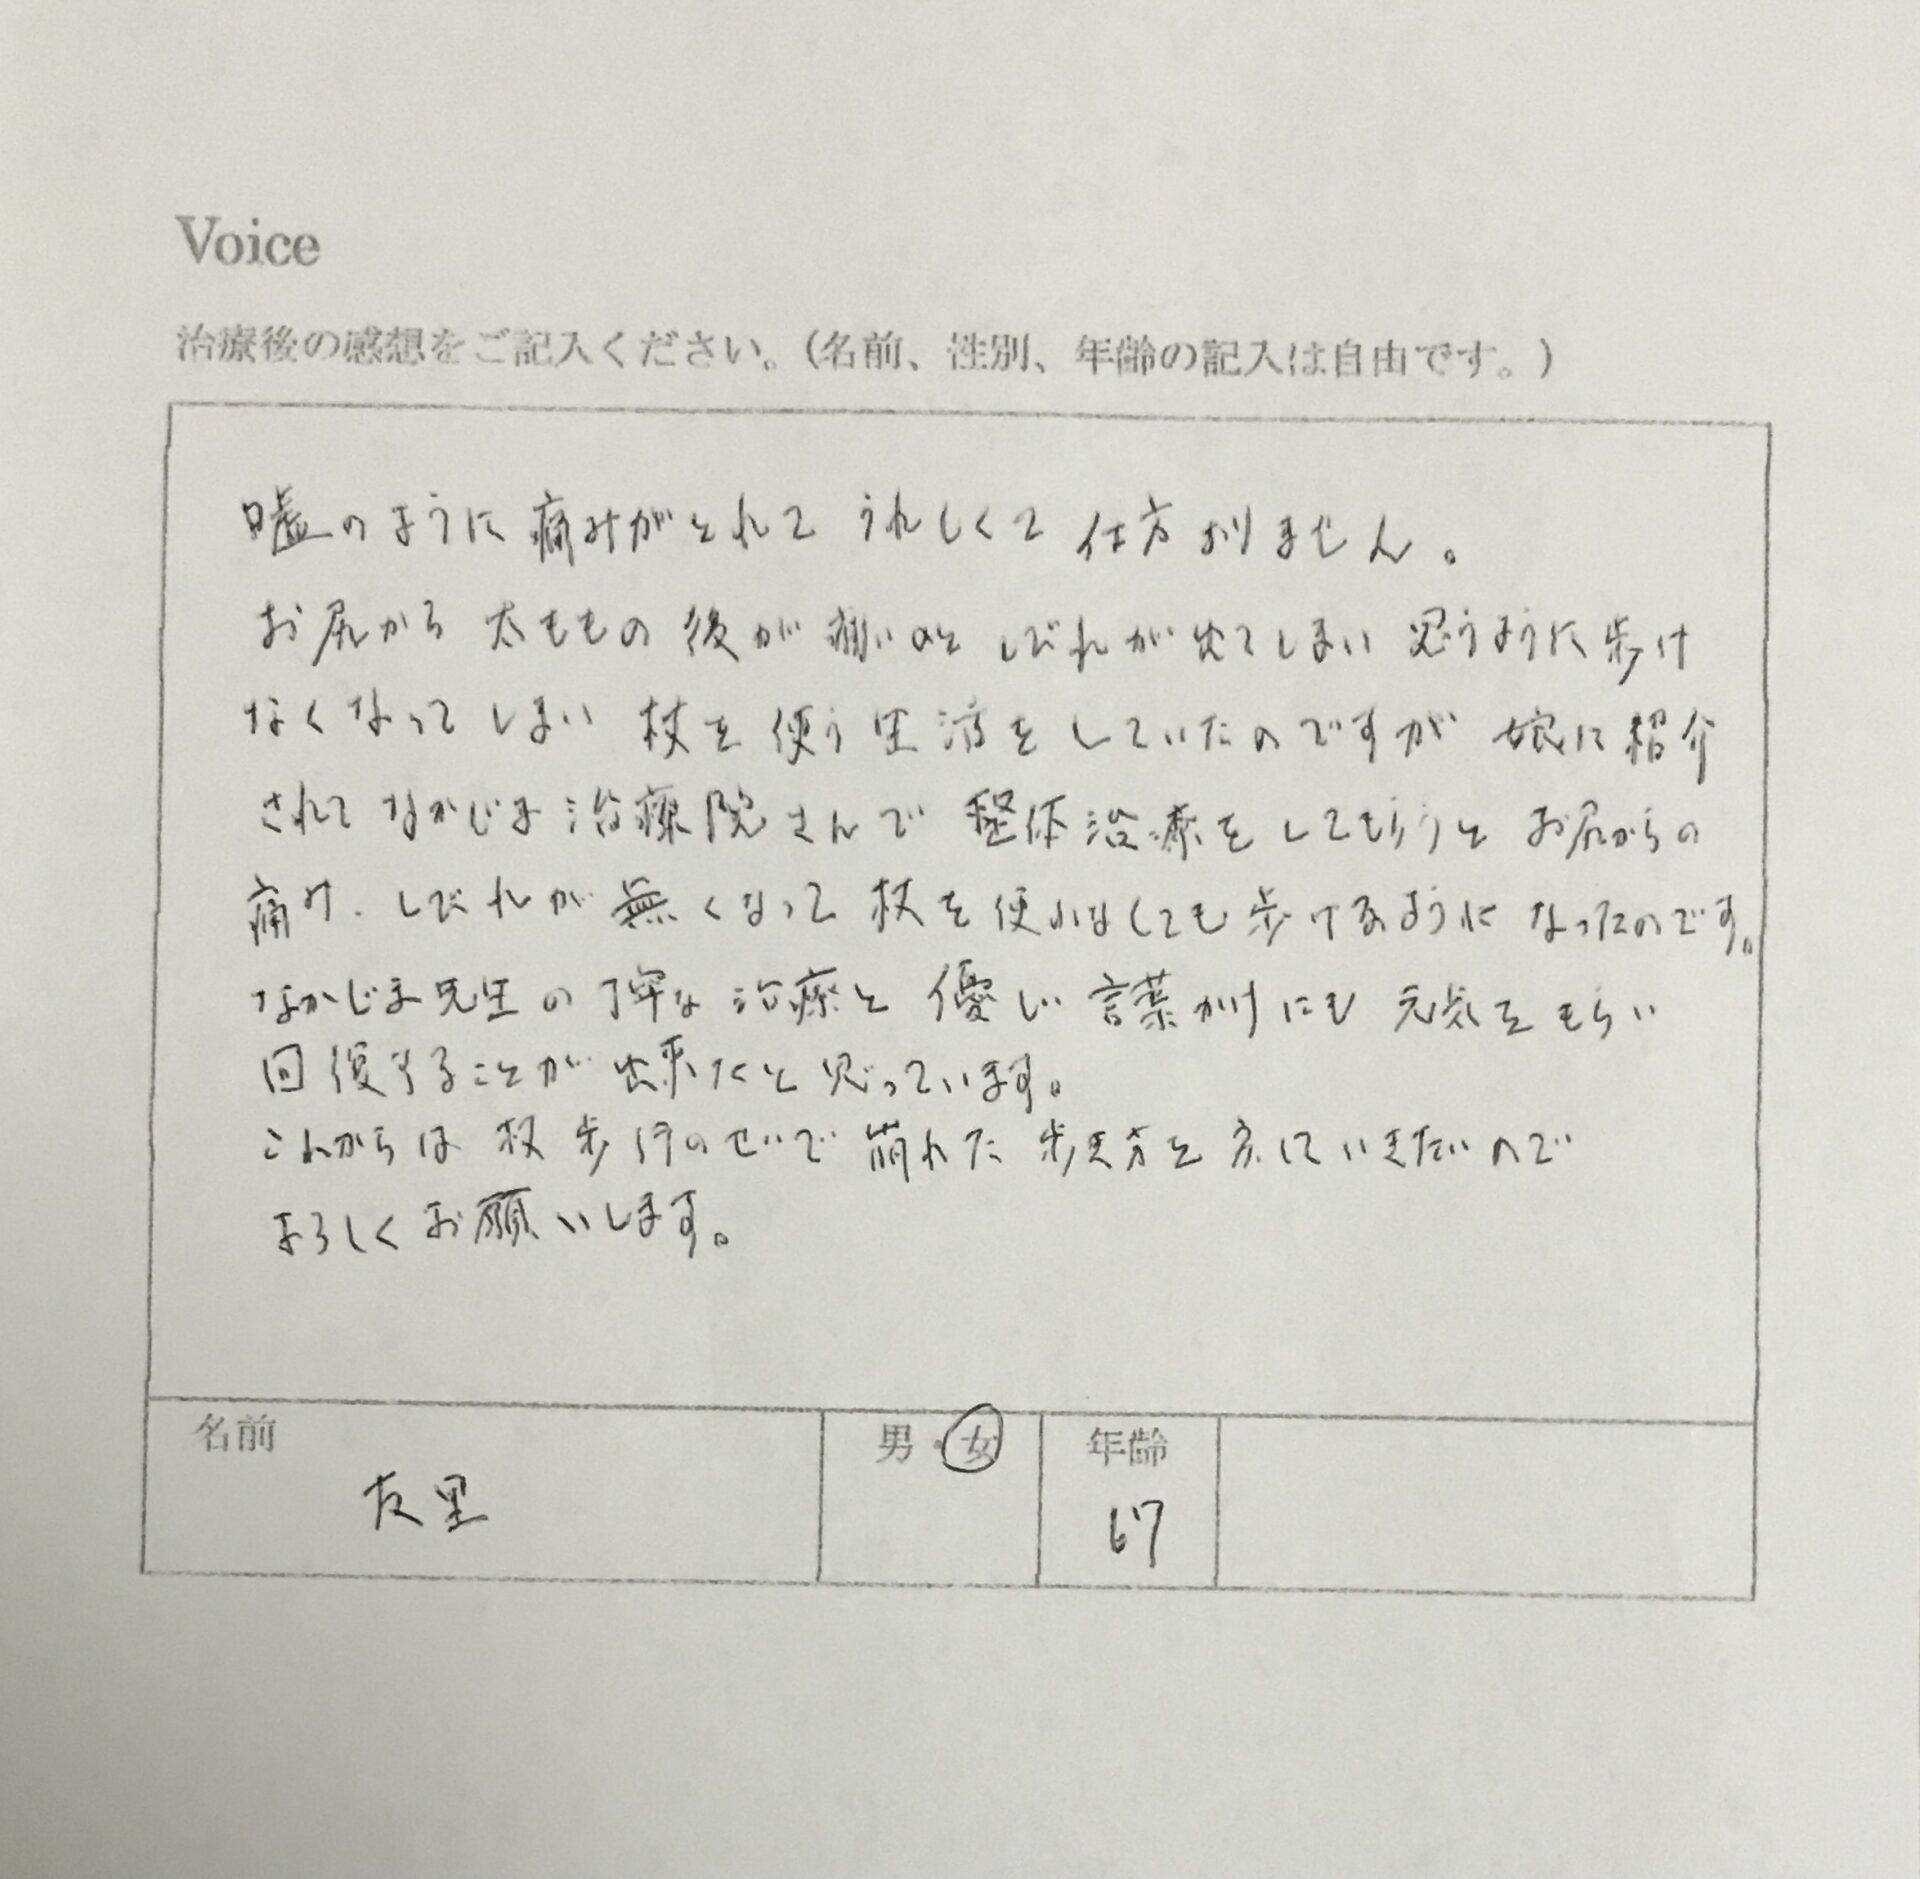 Voice
治療後の感想をご記入ください。(名前、性別、年齢の記入は自由です。)
嘘のように痛みがとれて うれしくて 仕方ありません。
お尻から 太ももの 後が 痛いのと しびれが 出てしまい 思うように 歩け
なくなってしまい 杖を 使う 生活を していたのですが 娘に 紹介
されて なかじま 治療院さんで 整体治療を してもらうと お尻からの
痛み、しびれが 無くなって 杖を 使わなくても 歩けるように なったのです。
なかじま先生の 丁寧な 治療と 優しい 言葉がけにも 元気を もらい
回復することが 出来たと 思っています。
これからは 杖 歩行のせいで 崩れた 歩き方を していきたいので
よろしく お願いします。
名前 男・女 年齢
友里 67